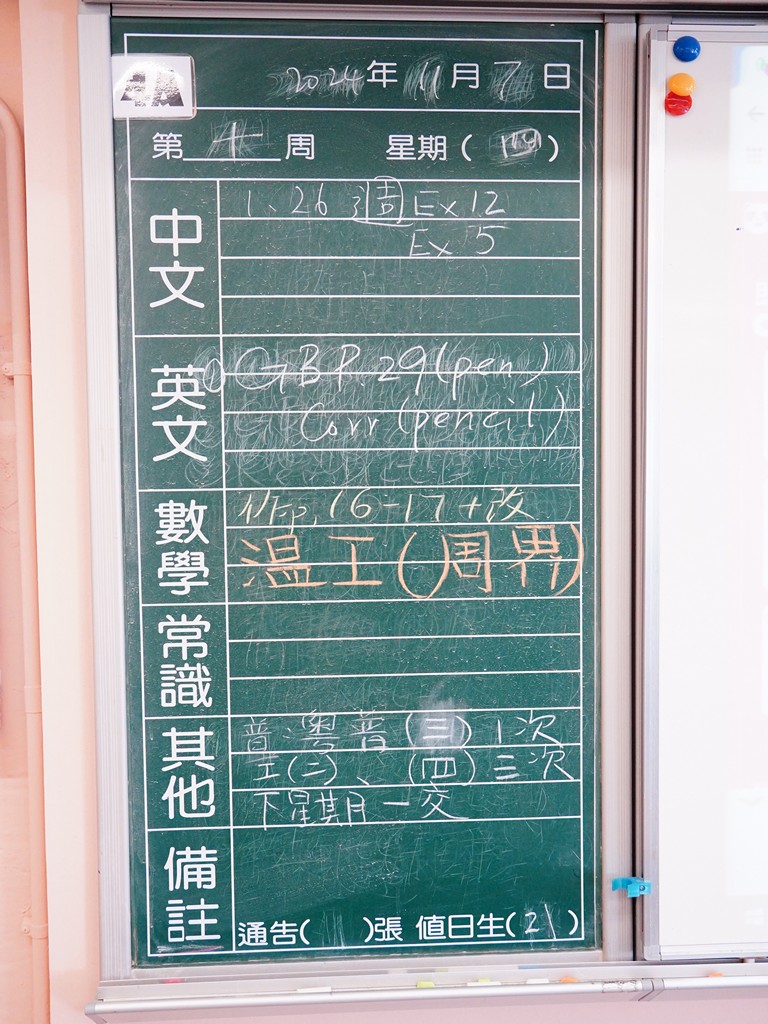 2024年11月7日
第十周 星期(四)
中文
1、26 週 Ex 12
Ex 5
英文
① GB P. 29 (pen)
Corr (pencil)
數學
p. 16-17 + 改
温工(周界)
常識
其他
普:粵普(三) 1次
工(二)、(四)三次
下星期一交
備註
通告( )張 值日生(21)